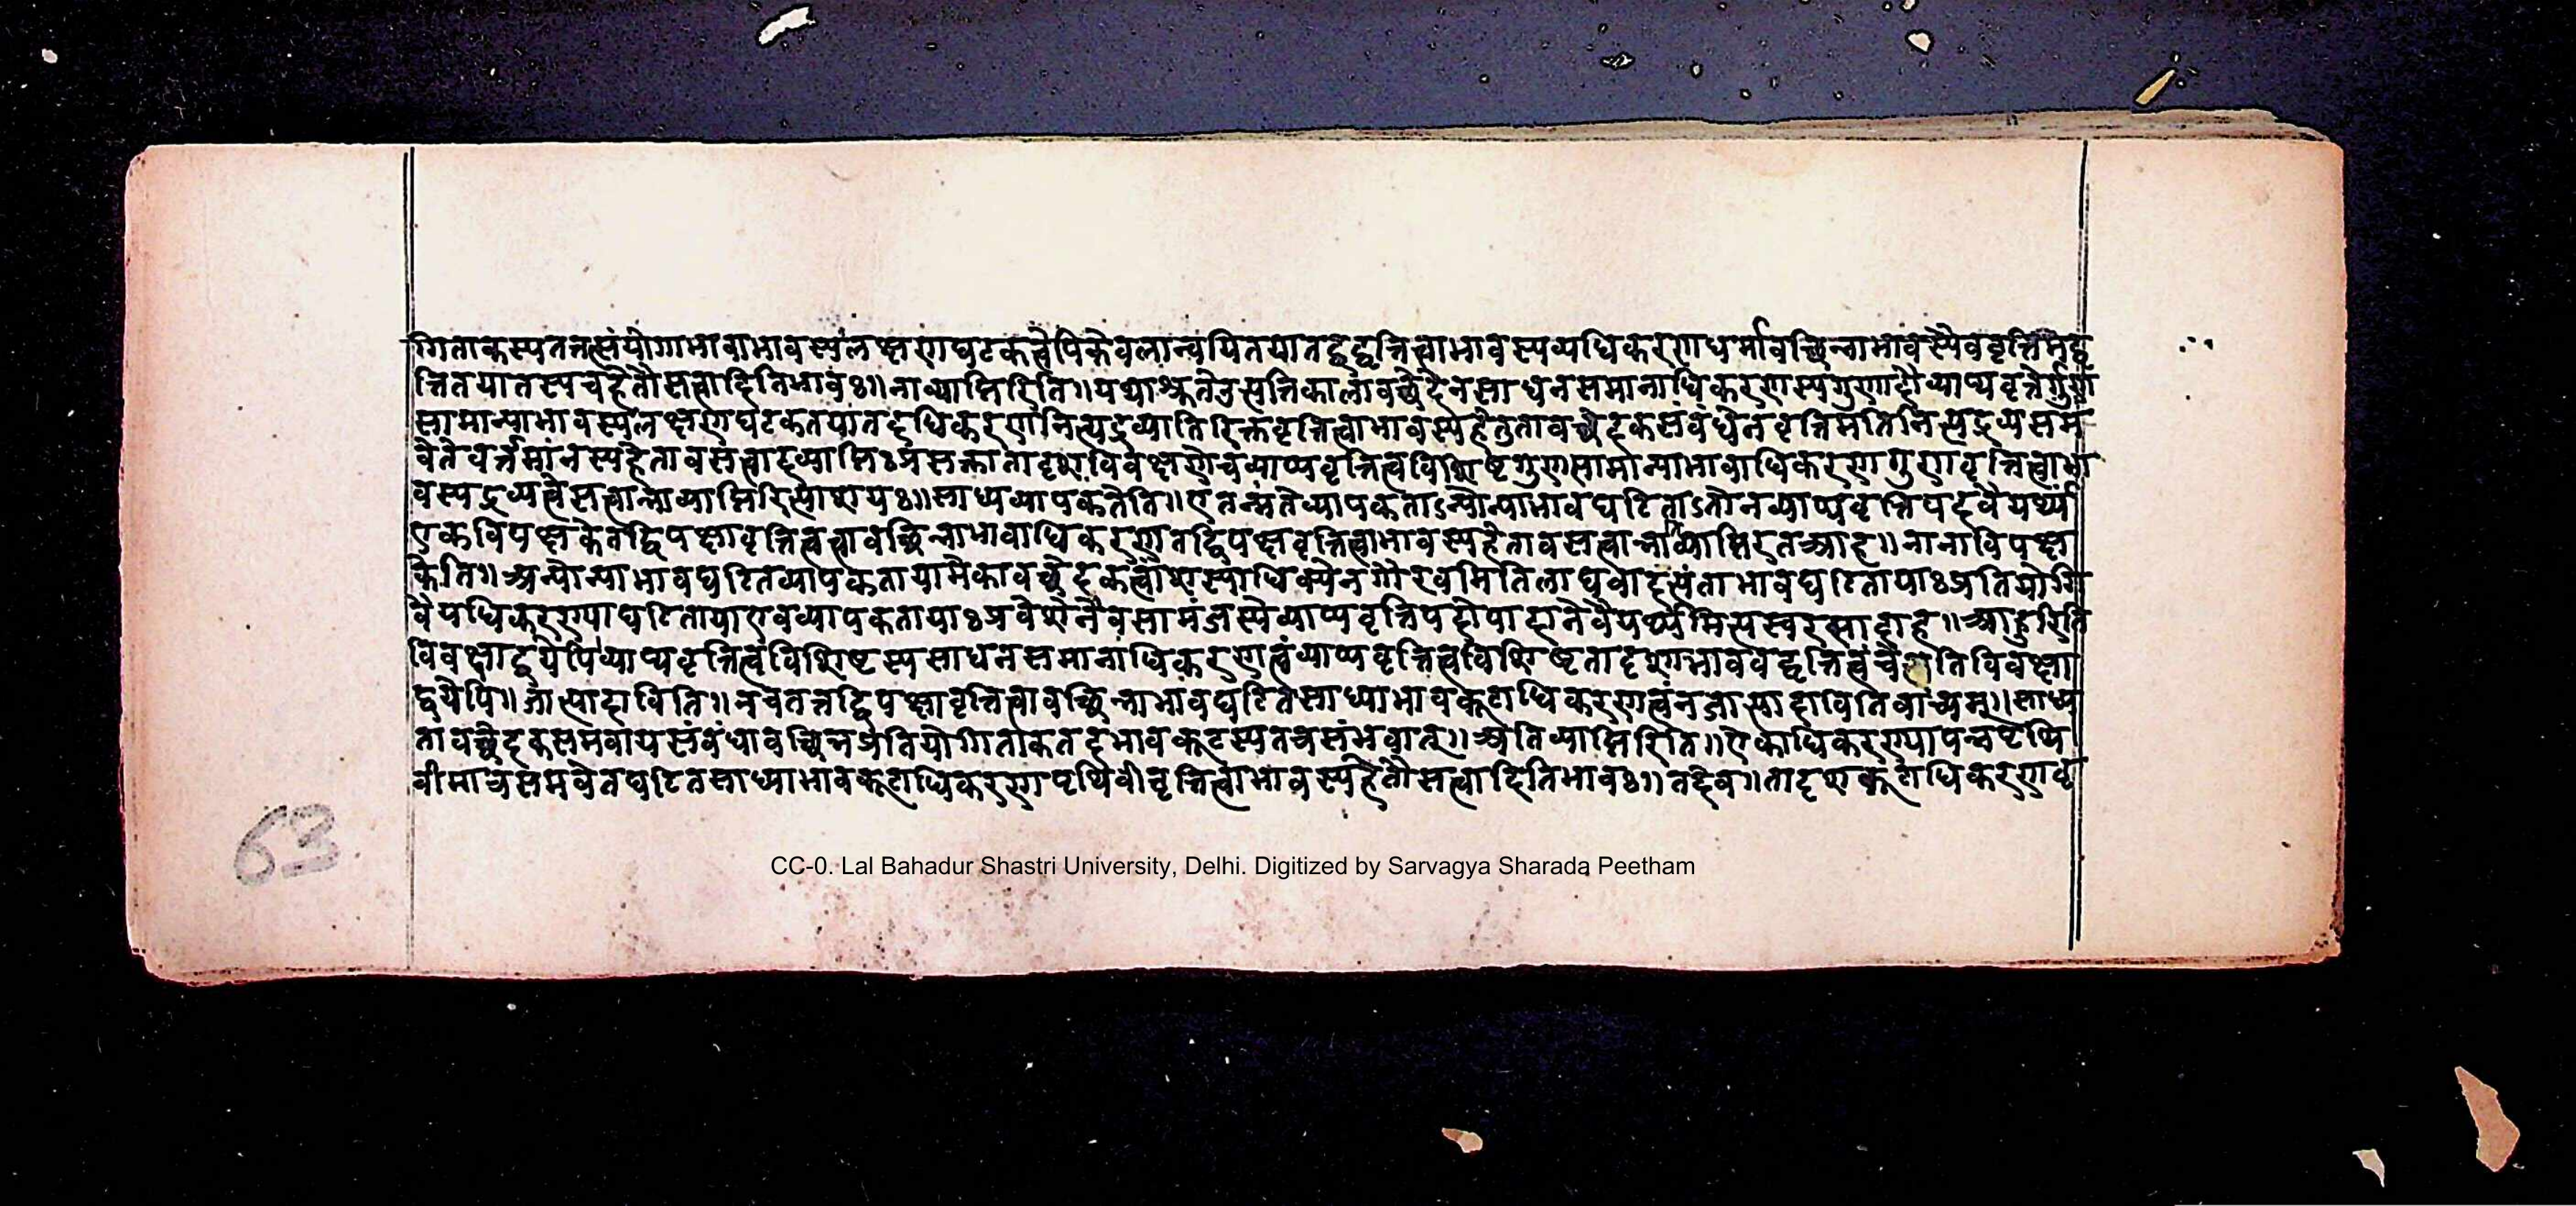 गिताकस्यतत्तत्संयोगाभावाभावस्यलक्षणघटकत्वेपिकेवलान्वयितयातद्वद्वृत्तित्वाभावस्यव्यधिकरणधर्मावच्छिन्नाभावस्यैववृत्तिमद्वृ
त्तितयातस्यचहेतौसत्वादितिभावः॥नाव्याप्तिरिति॥यथाश्रुतेतुसत्तिकालावच्छेदेनसाधनसमानाधिकरणस्यगुणादौव्याप्यवृत्तेर्गुण
सामान्याभावस्यलक्षणघटकतयातदधिकरणनित्यद्रव्यातिरिक्तवृत्तित्वाभावस्यहेतुतावच्छेदकसंबंधेनवृत्तिमतिनित्यद्रव्यसम
वेतेवर्त्तमानस्यहेतावसत्वादव्याप्तिःप्रसक्तातादृशविवक्षणेचव्याप्यवृत्तित्वविशिष्टगुणसामान्याभावाधिकरणगुणवृत्तित्वाभा
वस्यद्रव्यत्वेसत्वान्नाव्याप्तिरित्याशयः॥साध्यव्यापकतेति॥एतन्मतेव्यापकताऽन्योन्याभावघटिताऽतोनव्याप्यवृत्तिपदवैयर्थ्यं
एकविपक्षकेतद्विपक्षावृत्तित्वत्वावच्छिन्नाभावाधिकरणतद्विपक्षवृत्तित्वाभावस्यहेतावसत्वान्नाव्याप्तिरतआह॥नानाविपक्ष
केति॥अन्योन्याभावघटितव्यापकतायामेकावच्छेदकत्वांशस्याधिक्येनगौरवमितिलाघवादत्यंताभावघटितायाःप्रतियोगि
वैयधिकरण्याघटितायाएवव्यापकतायाःप्रवेशेनैवसामंजस्येव्याप्यवृत्तिपदोपादानेवैयर्थ्यमित्यस्वरसादाह॥आहुरिति
विवक्षाद्वयेपिव्याप्यवृत्तित्वविशिष्टस्यसाधनसमानाधिकरणत्वंव्याप्यवृत्तित्वविशिष्टतादृशाभाववद्वृत्तित्वंचेतिविवक्षा
द्वयेपि॥जात्यादाविति॥नचतत्तद्विपक्षावृत्तित्वावच्छिन्नाभावघटितसाध्याभावकूटाधिकरणत्वंनजात्यादावितिवाच्यम्॥साध्य
तावच्छेदकसमवायसंबंधावच्छिन्नप्रतियोगिताकतदभावकूटस्यतत्रसंभवात्॥अतिव्याप्तिरिति॥ऐकाधिकरण्यापन्नपृथि
वीमात्रसमवेतघटितसाध्याभावकूटाधिकरणपृथिवीवृत्तित्वाभावस्यहेतौसत्वादितिभावः॥तदेव॥तादृशकूटाधिकरणावृ
63
CC-0. Lal Bahadur Shastri University, Delhi. Digitized by Sarvagya Sharada Peetham